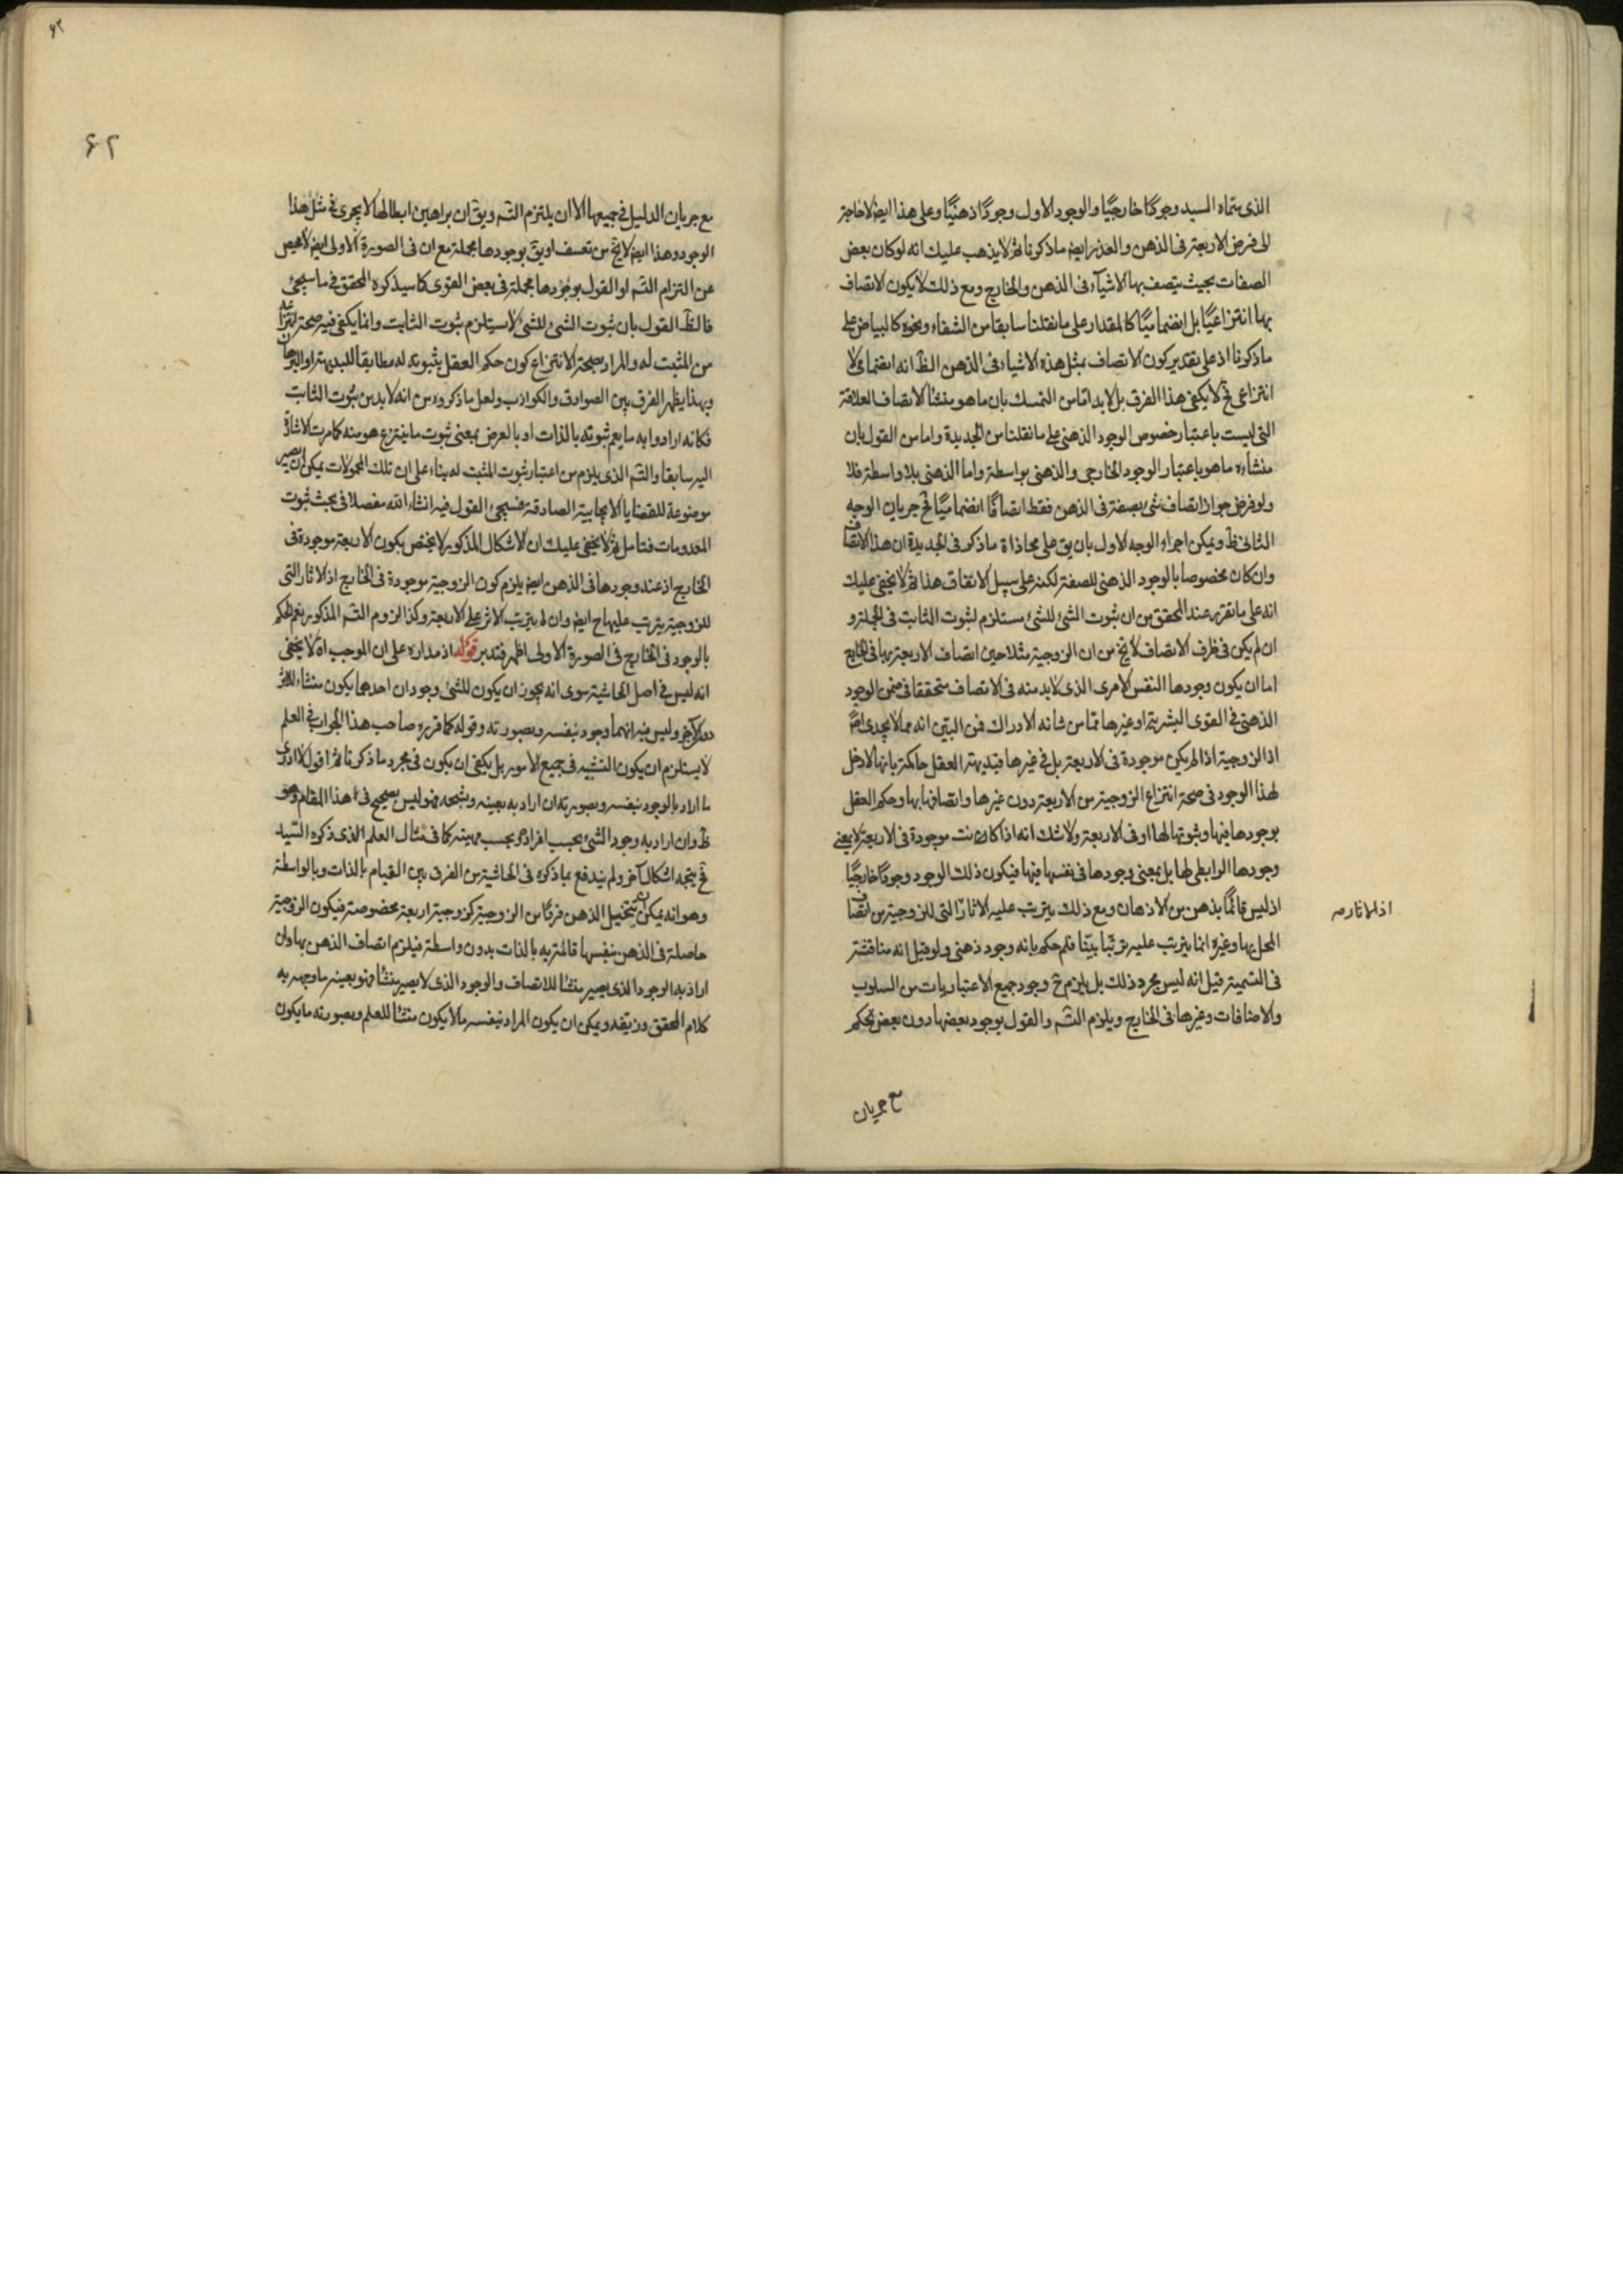 الذى سماه السيد وجودًا خارجيًا والوجود الاول وجودًا ذهنيًا وعلى هذا ايض لا حاجة
الى فرض الاربعة فى الذهن والعذر ايض ما ذكرنا ثم لا يذهب عليك انه لو كان بعض
الصفات بحيث يتصف بها الاشيآء فى الذهن والخارج ومع ذلك لا يكون الاتصاف
بها انتزاعيًا بل انضماميًا كالمقدار على ما نقلنا سابقا من الشفاء ونحوه كالبياض على
ما ذكرنا اذ على تقدير كون الاتصاف بمثل هذه الاشياء فى الذهن الظ انه انضمامى لا
انتزاعى فح لا يكفى هذا الفرق بل لابد اما من التمسك بان ما هو منشأ الاتصاف العلاقة
التى ليست باعتبار خصوص الوجود الذهنى على ما نقلنا من الجديدة واما من القول بان
منشاءه ما هو باعتبار الوجود الخارجى والذهنى بواسطة واما الذهنى بلا واسطة فلا
ولو فرض جواز اتصاف شى بصفة فى الذهن فقط اتصافًا انضماميًا فح جريان الوجه
الثانى ظ ويمكن اجراء الوجه الاول بان يق على محاذاة ما ذكر فى الجديدة ان هذا الاتصاف
وان كان مخصوصا بالوجود الذهنى للصفة لكنه على سبيل الاتفاق هذا ثم لا يخفى عليك
انه على ما تقرر عند المحقق من ان ثبوت الشئ للشئ مستلزم لثبوت الثابت فى الجملة و
ان لم يكن فى ظرف الاتصاف لا يخ من ان الزوجية مثلا حين اتصاف الاربعة بها فى الخارج
اما ان يكون وجودها النفس الامرى الذى لابد منه فى الاتصاف متحققا فى ضمن الوجود
الذهنى فى القوى البشرية او غيرها مما من شانه الادراك فمن البيّن انه مما لا يجدى اصًا
اذ الزوجية اذا لم يكن موجودة فى الاربعة بل فى غيرها فبديهة العقل حاكمة بانها لا دخل
لهذا الوجود فى صحة انتزاع الزوجية من الاربعة دون غيرها واتصافها بها وحكم العقل
بوجودها فيها وثبوتها لها او فى الاربعة ولا شك انه اذا كانت موجودة فى الاربعة لا بمعنى
وجودها الرابطى لها بل بمعنى وجودها فى نفسها فيها فيكون ذلك الوجود وجودًا خارجيًا
اذ ليس قائمًا بذهن من الاذهان ومع ذلك يترتب عليه الاثار التى للزوجية من اتصاف
اذ الاثار صه
المحل بها وغيره انما يترتب عليه ترتبا بيّنا فلم حكم بانه وجود ذهنى ولو قيل انه مناقشة
فى التسمية قيل انه ليس مجرد ذلك بل يلزم ح وجود جميع الاعتباريات من السلوب
والاضافات وغيرها فى الخارج ويلزم التسه والقول بوجود بعضها دون بعض تحكم
مع جريان
٤٢
٤٢
مع جريان الدليل فى جميعها الا ان يلتزم التسه ويق ان براهين ابطالها لا يجرى فى مثل هذا
الوجود وهذا ايض لا يخ من تعسف او يق بوجودها مجملة مع ان فى الصورة الاولى ايض لا محيص
عن التزام التسه او القول بوجودها مجملة فى بعض القوى كما سيذكره المحقق فى ما سيجئ
فالظ القول بان ثبوت الشئ للشئ لا يستلزم ثبوت الثابت وانما يكفى فيه صحة انتزاعه
من المثبت له والمراد بصحة الانتزاع كون حكم العقل بثبوته له مطابقا للبديهة او البرهان
وبهذا يظهر الفرق بين الصوادق والكواذب ولعل ما ذكروه من انه لابد من ثبوت الثابت
فكانه ارادوا به ما يعم ثبوته بالذات او بالعرض بمعنى ثبوت ما ينتزع هو منه كما مرت الاشارة
اليه سابقا والتسه الذى يلزم من اعتبار ثبوت المثبت له بناء على ان تلك المحمولات يمكن ان يصير
موضوعة للقضايا الايجابية الصادقة فسيجئ القول فيه انشاء الله مفصلا فى بحث ثبوت
المعدومات فتامل ثم لا يخفى عليك ان الاشكال المذكور لا يختص بكون الاربعة موجودة فى
الخارج اذ عند وجودها فى الذهن ايض يلزم كون الزوجية موجودة فى الخارج اذ الاثار التى
للزوجية يترتب عليها ح ايض وان لم يترتب الاثر على الاربعة وكذا لزوم التسه المذكور نعم الحكم
بالوجود فى الخارج فى الصورة الاولى اظهر فتدبر قوله اذ مداره على ان الموجب اه لا يخفى
انه ليس فى اصل الحاشية سوى انه يجوز ان يكون للشئ وجودان احدهما يكون منشاء للاثر
دون الآخر وليس فيه انهما وجود بنفسه وبصورته وقوله كما قرره صاحب هذا الجواب فى العلم
لا يستلزم ان يكون التشبيه فى جميع الامور بل يكفى ان يكون فى مجرد ما ذكرنا ثم اقول لا ادرى
ما اراد بالوجود بنفسه وبصورته ان اراد به بعينه وبشبحه فهو ليس بصحيح فى هذا المقام وهو
ظ وان اراد به وجود الشئ بحسب افراده وبحسب مهيته كما فى مثال العلم الذى ذكره السيد
فح يتجه اشكال آخر ولم يندفع بما ذكره فى الحاشية من الفرق بين القيام بالذات وبالواسطة
وهو انه يمكن ان يتخيل الذهن فردًا من الزوجية كزوجية اربعة مخصوصة فيكون الزوجية
حاصلة فى الذهن بنفسها قائمة به بالذات بدون واسطة فيلزم اتصاف الذهن بها وان
اراد به الوجود الذى يصير منشأ للاتصاف والوجود الذى لا يصير منشأ فهو بعينه ما وجهه به
كلام المحقق وزيفه ويمكن ان يكون المراد بنفسه ما لا يكون منشأ للعلم وبصورته ما يكون